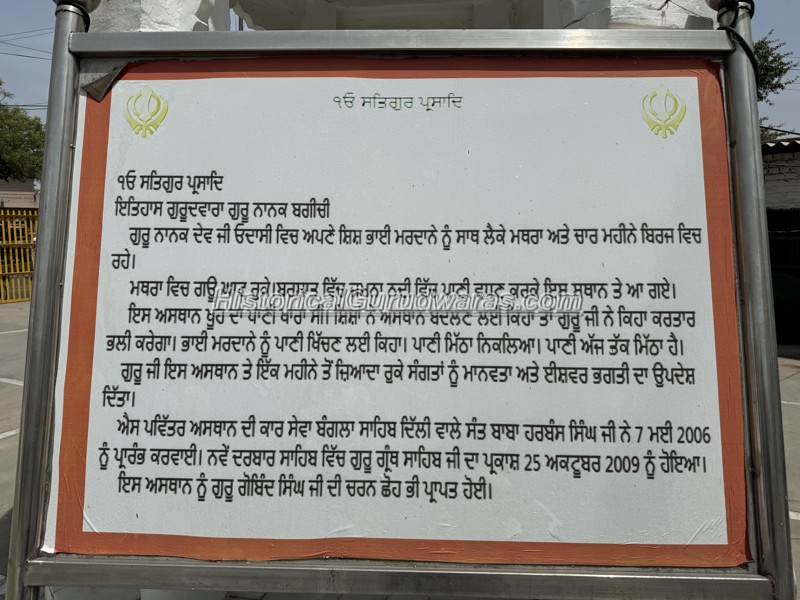 ੧ਓ ਸਤਿਗੁਰ ਪ੍ਰਸਾਦਿ
੧ਓ ਸਤਿਗੁਰ ਪ੍ਰਸਾਦਿ
ਇਤਿਹਾਸ ਗੁਰੂਦਵਾਰਾ ਗੁਰੂ ਨਾਨਕ ਬਗੀਚੀ
ਗੁਰੂ ਨਾਨਕ ਦੇਵ ਜੀ ਓਦਾਸੀ ਵਿਚ ਅਪਣੇ ਸ਼ਿਸ਼ ਭਾਈ ਮਰਦਾਨੇ ਨੂੰ ਸਾਥ ਲੈਕੇ ਮਥਰਾ ਅਤੇ ਚਾਰ ਮਹੀਨੇ ਬਿਰਜ ਵਿਚ
ਰਹੇ।
ਮਥਰਾ ਵਿਚ ਗਊ ਘਾਟ ਰੁਕੇ।ਬਰਸਾਤ ਵਿੱਚ ਜਮਨਾ ਨਦੀ ਵਿੱਚ ਪਾਣੀ ਵਧਣ ਕਰਕੇ ਇਸ ਸਥਾਨ ਤੇ ਆ ਗਏ।
HistoricalGurudwaras.com
ਇਸ ਅਸਥਾਨ ਖੂਹ ਦਾ ਪਾਣੀ ਖਾਰਾ ਸੀ ਸ਼ਿਸ਼ਾਂ ਨੇ ਅਸਥਾਨ ਬਦਲਣ ਲਈ ਕਿਹਾ ਤਾਂ ਗੁਰੂ ਜੀ ਨੇ ਕਿਹਾ ਕਰਤਾਰ
ਭਲੀ ਕਰੇਗਾ। ਭਾਈ ਮਰਦਾਨੇ ਨੂੰ ਪਾਣੀ ਖਿੱਚਣ ਲਈ ਕਿਹਾ। ਪਾਣੀ ਮਿੱਠਾ ਨਿਕਲਿਆ। ਪਾਣੀ ਅੱਜ ਤੱਕ ਮਿੱਠਾ ਹੈ।
ਗੁਰੂ ਜੀ ਇਸ ਅਸਥਾਨ ਤੇ ਇੱਕ ਮਹੀਨੇ ਤੋਂ ਜ਼ਿਆਦਾ ਰੁਕੇ ਸੰਗਤਾਂ ਨੂੰ ਮਾਨਵਤਾ ਅਤੇ ਈਸ਼ਵਰ ਭਗਤੀ ਦਾ ਉਪਦੇਸ਼
ਦਿੱਤਾ।
ਐਸ ਪਵਿੱਤਰ ਅਸਥਾਨ ਦੀ ਕਾਰ ਸੇਵਾ ਬੰਗਲਾ ਸਾਹਿਬ ਦਿੱਲੀ ਵਾਲੇ ਸੰਤ ਬਾਬਾ ਹਰਬੰਸ ਸਿੰਘ ਜੀ ਨੇ 7 ਮਈ 2006
ਨੂੰ ਪ੍ਰਾਰੰਭ ਕਰਵਾਈ। ਨਵੇਂ ਦਰਬਾਰ ਸਾਹਿਬ ਵਿੱਚ ਗੁਰੂ ਗ੍ਰੰਥ ਸਾਹਿਬ ਜੀ ਦਾ ਪ੍ਰਕਾਸ਼ 25 ਅਕਟੂਬਰ 2009 ਨੂੰ ਹੋਇਆ।
ਇਸ ਅਸਥਾਨ ਨੂੰ ਗੁਰੂ ਗੋਬਿੰਦ ਸਿੰਘ ਜੀ ਦੀ ਚਰਨ ਛੋਹ ਭੀ ਪ੍ਰਾਪਤ ਹੋਈ।